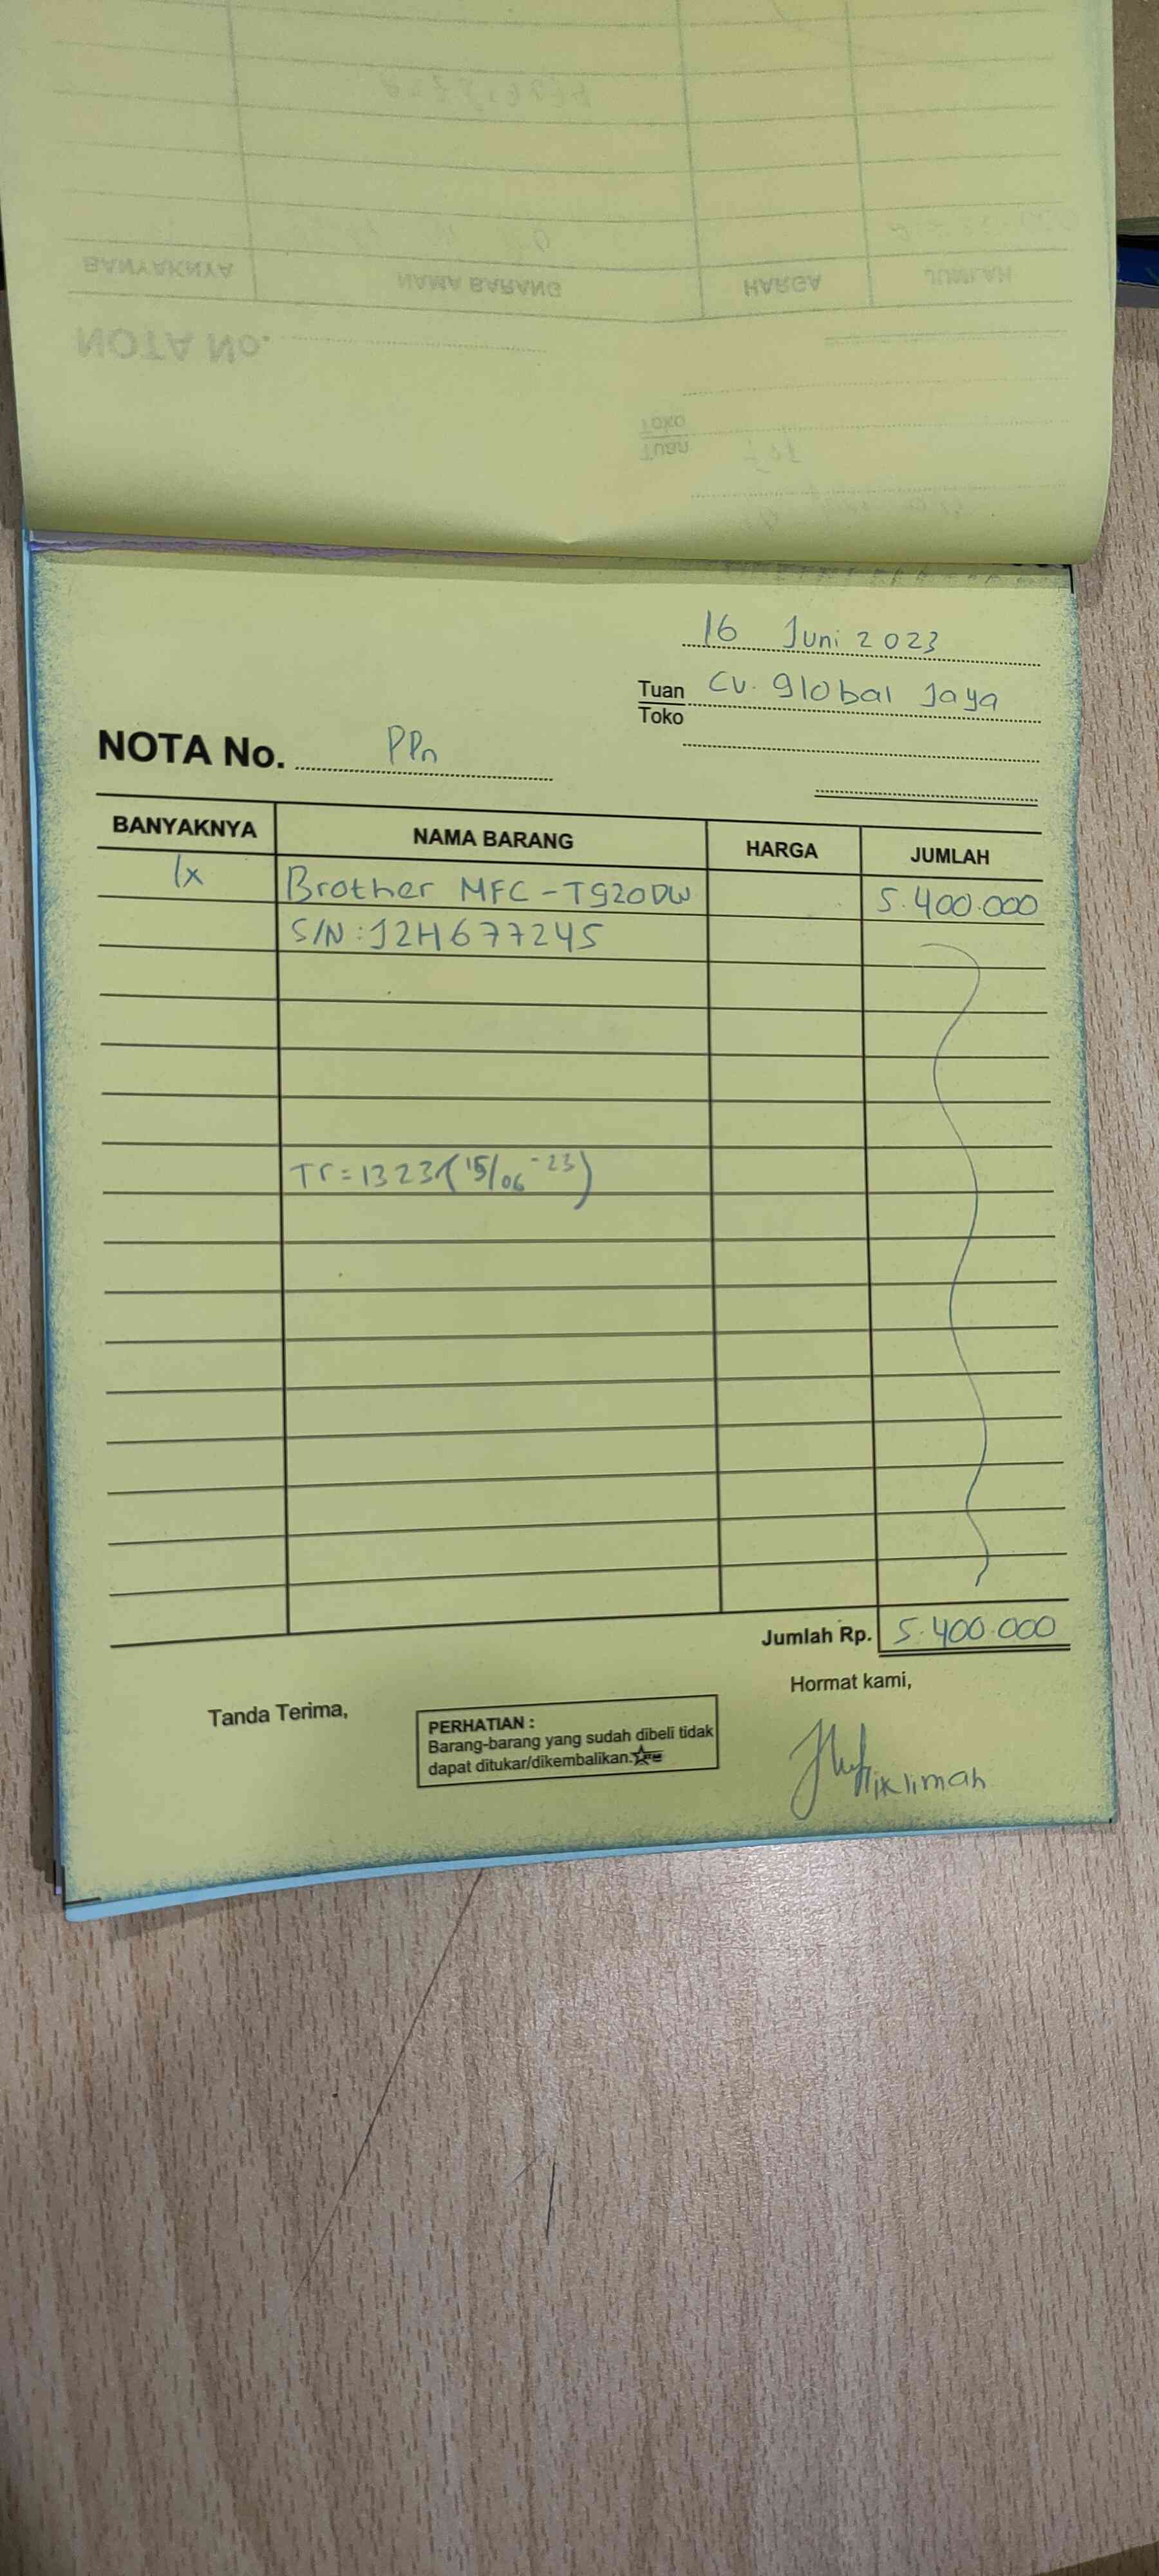 BANYAKNYA NAMA BARANG HARGA JUMLAH
NOTA No.
Toko
Tuan
16 Juni 2023
Tuan CV. Global Jaya
Toko
NOTA No. PPn
BANYAKNYA NAMA BARANG HARGA JUMLAH
1x Brother MFC-T920DW 5.400.000
S/N:J2H677245
Tr=1323 (15/06-23)
Jumlah Rp. 5.400.000
Hormat kami,
Tanda Terima,
PERHATIAN :
Barang-barang yang sudah dibeli tidak
dapat ditukar/dikembalikan.
iklimah